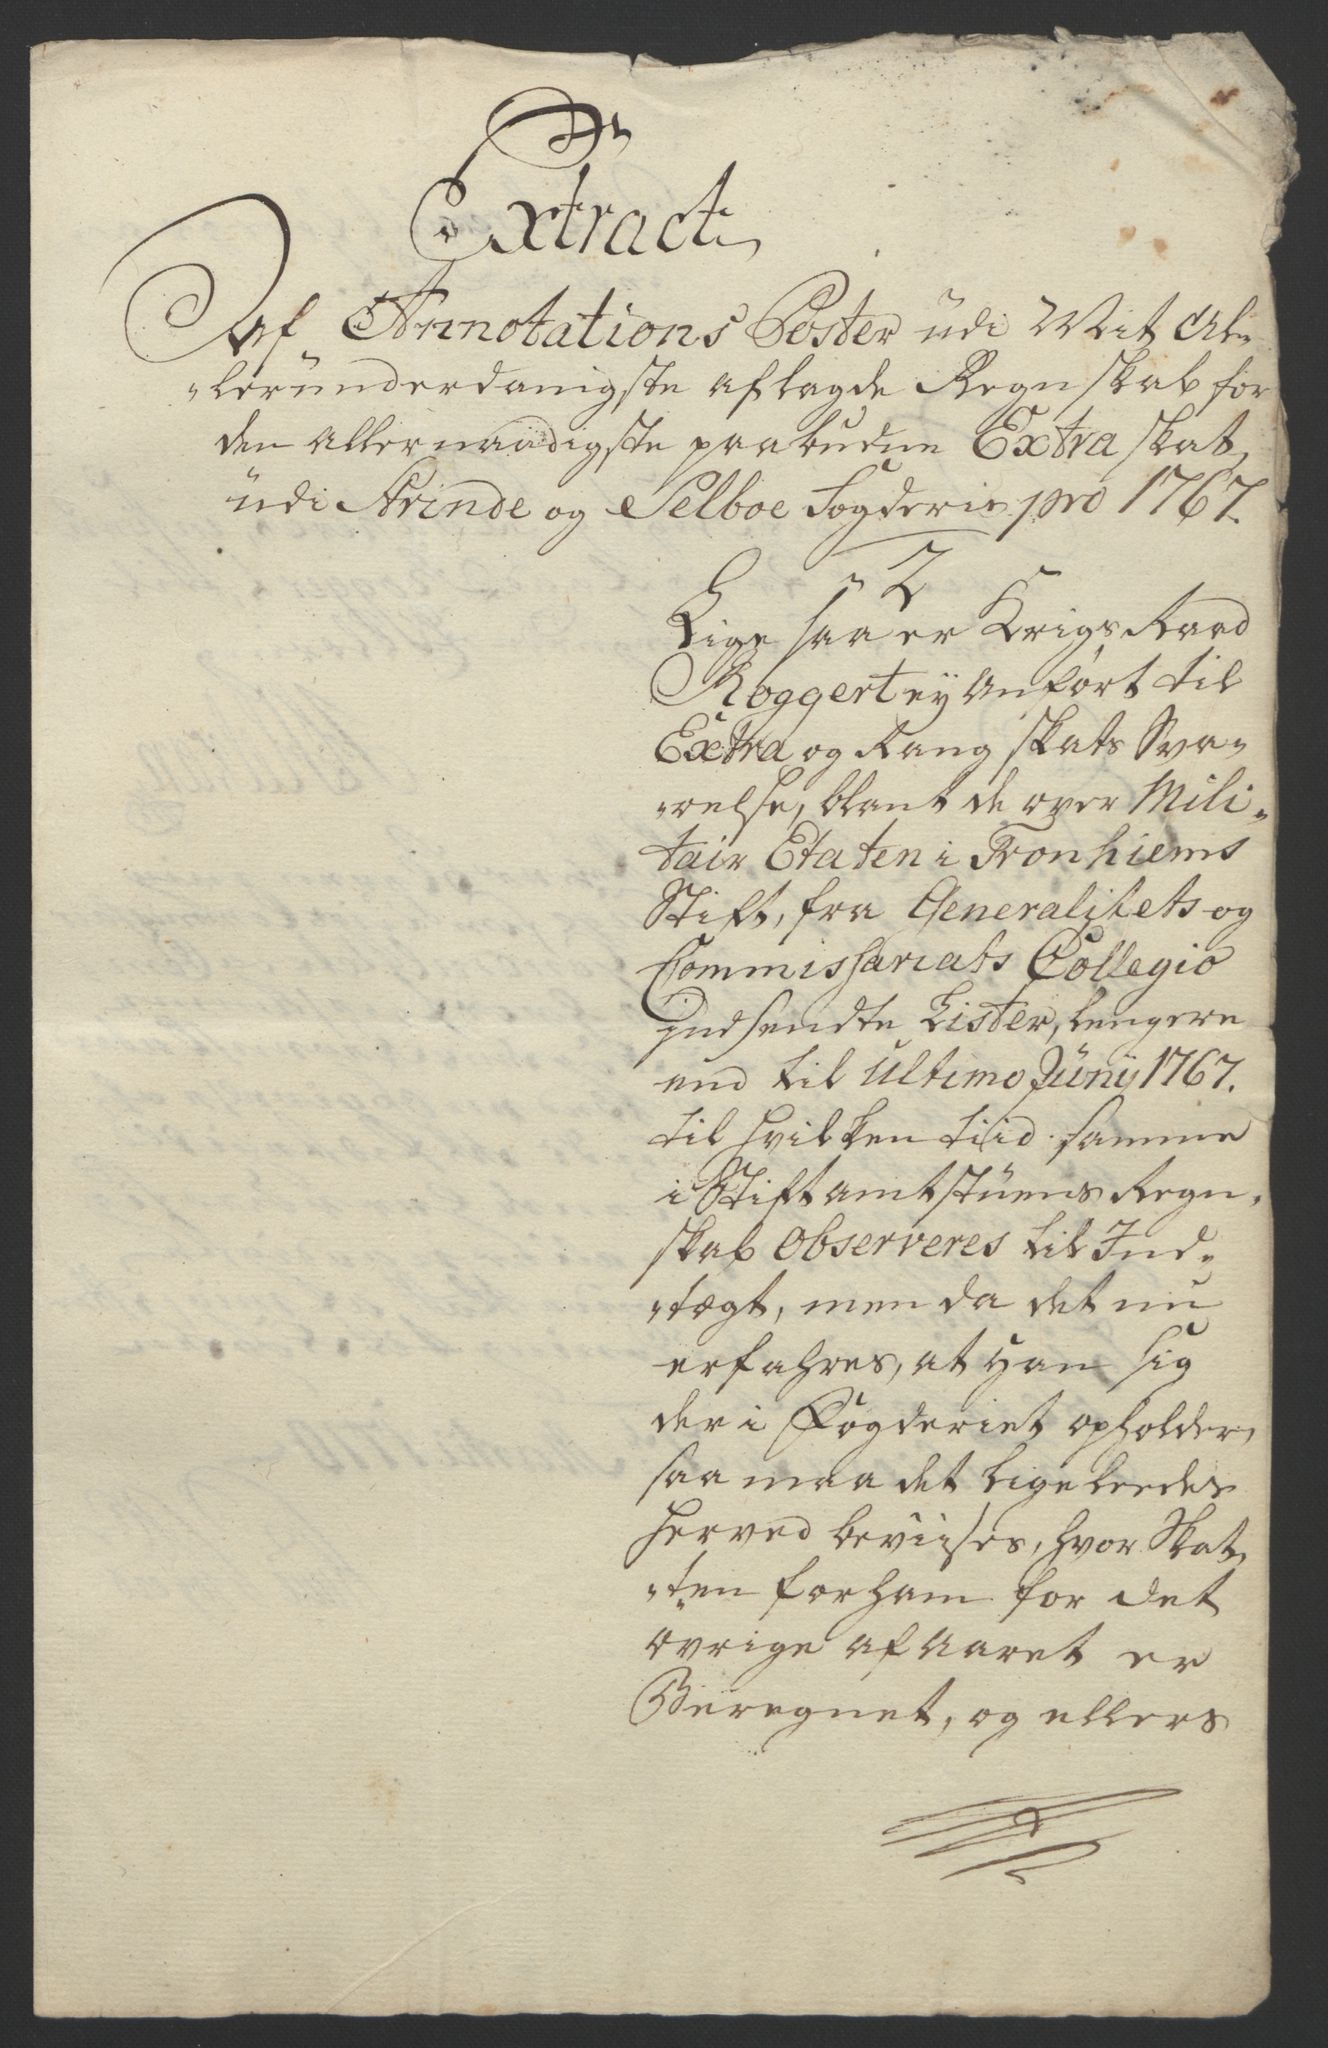 Extract
Af Annotations Poster udi Mit Al-
leründerdanigste aflagde Regnskab for
den allernaadigste paabudne Extra skat,
üdi Strinde og Selboe Fogderie pro 1767.
2
Lige saa er Krigs Raad
Roggert ey anført til
Extra og Rang skats Sva-
relse, blant de over Mili-
tair Etaten i Tronhiems
Stift, fra Generalitets og
Commissariats Collegio
Indsendte Lister, lengere
end til Ultimo Junij 1767.
til hvilken tiid samme
i Stiftamtstüens Regn-
skab observeres til Ind-
tægt, men da det nu
erfahres, at han sig
der i Fogderiet opholder,
saa maa det ligeleedes
herved beviises, hvor Skat-
ten for ham for det
øvrige af Aaret er
Beregnet, og ellers